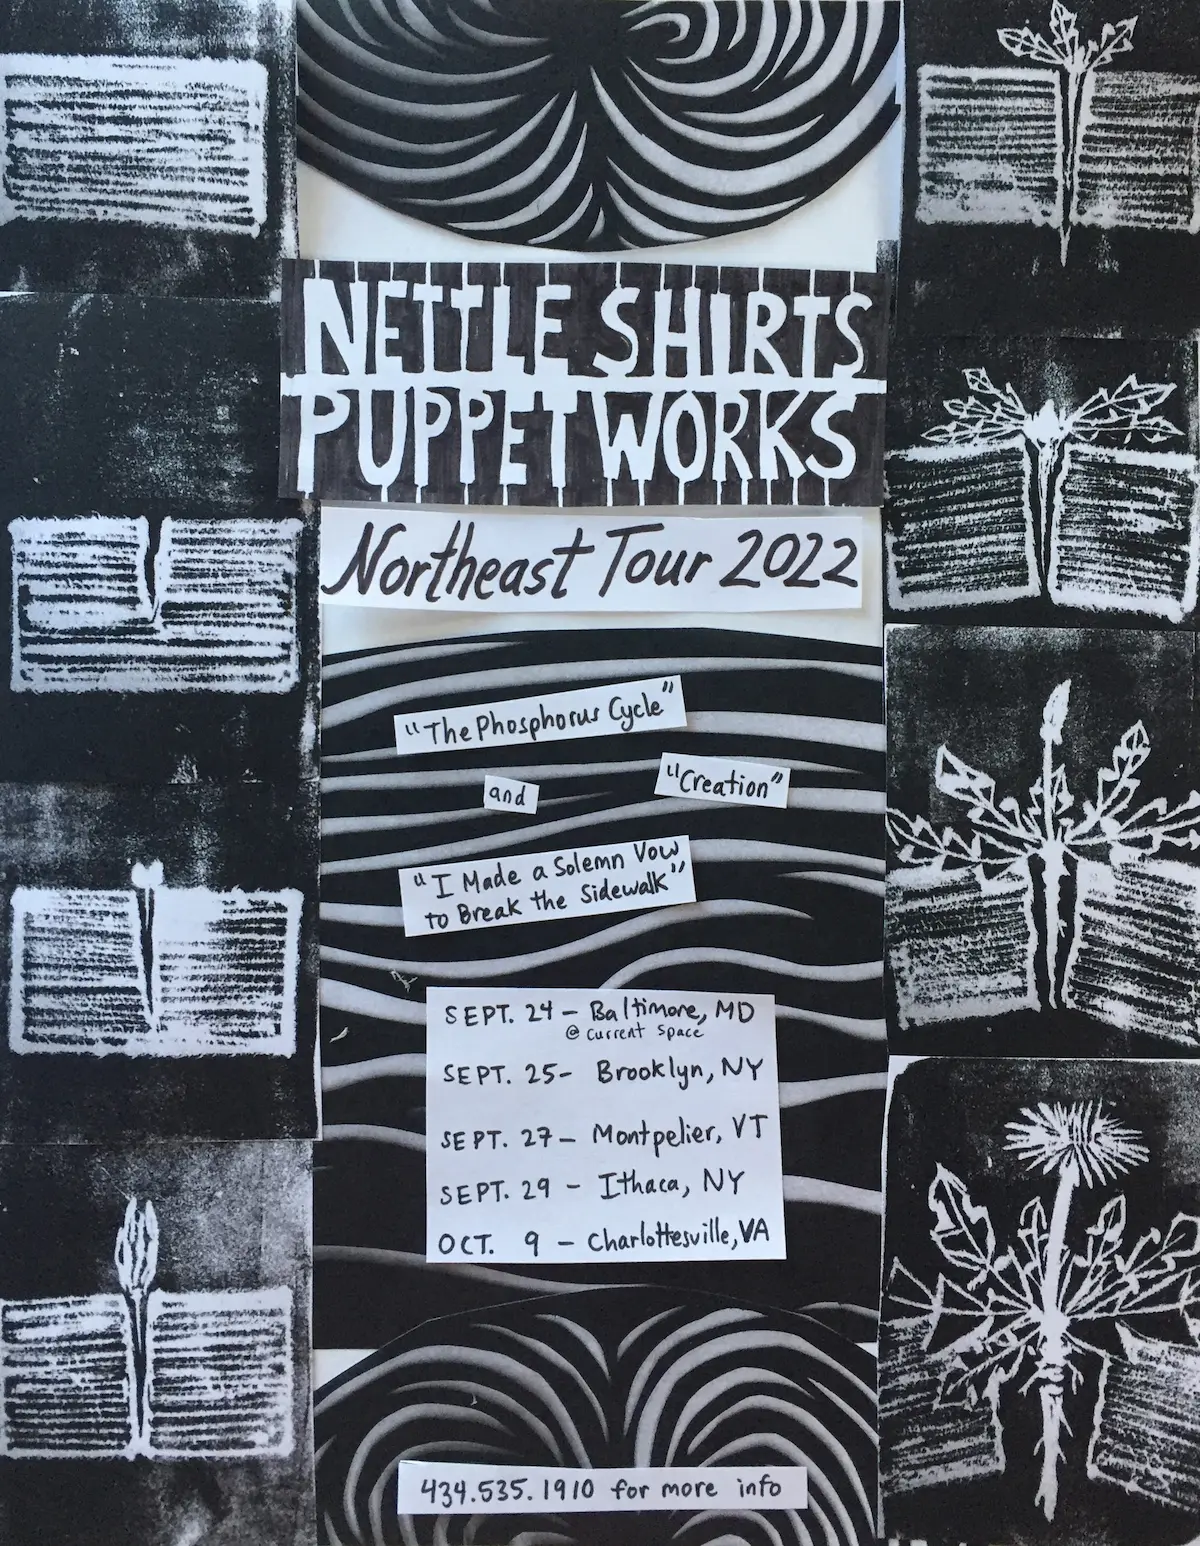 NETTLE SHIRTS
PUPPET WORKS
Northeast Tour 2022
"The Phosphorus Cycle"
"Creation"
and
"I Made a Solemn Vow
to Break the Sidewalk"
SEPT. 24 - Baltimore, MD
@ current space
SEPT. 25- Brooklyn, NY
SEPT. 27 - Montpelier, VT
SEPT. 29 - Ithaca, NY
OCT. 9 - Charlottesville, VA
434.535.1910 for more info